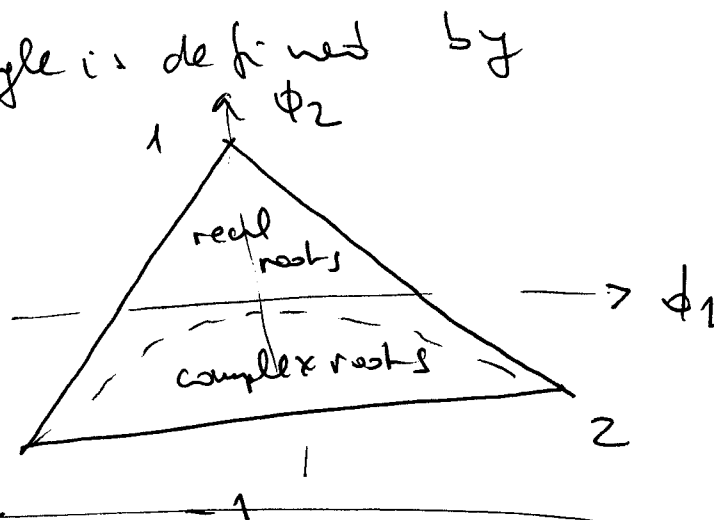 gle is defined by
ϕ2
1
real
roots
ϕ1
complex roots
2
-1